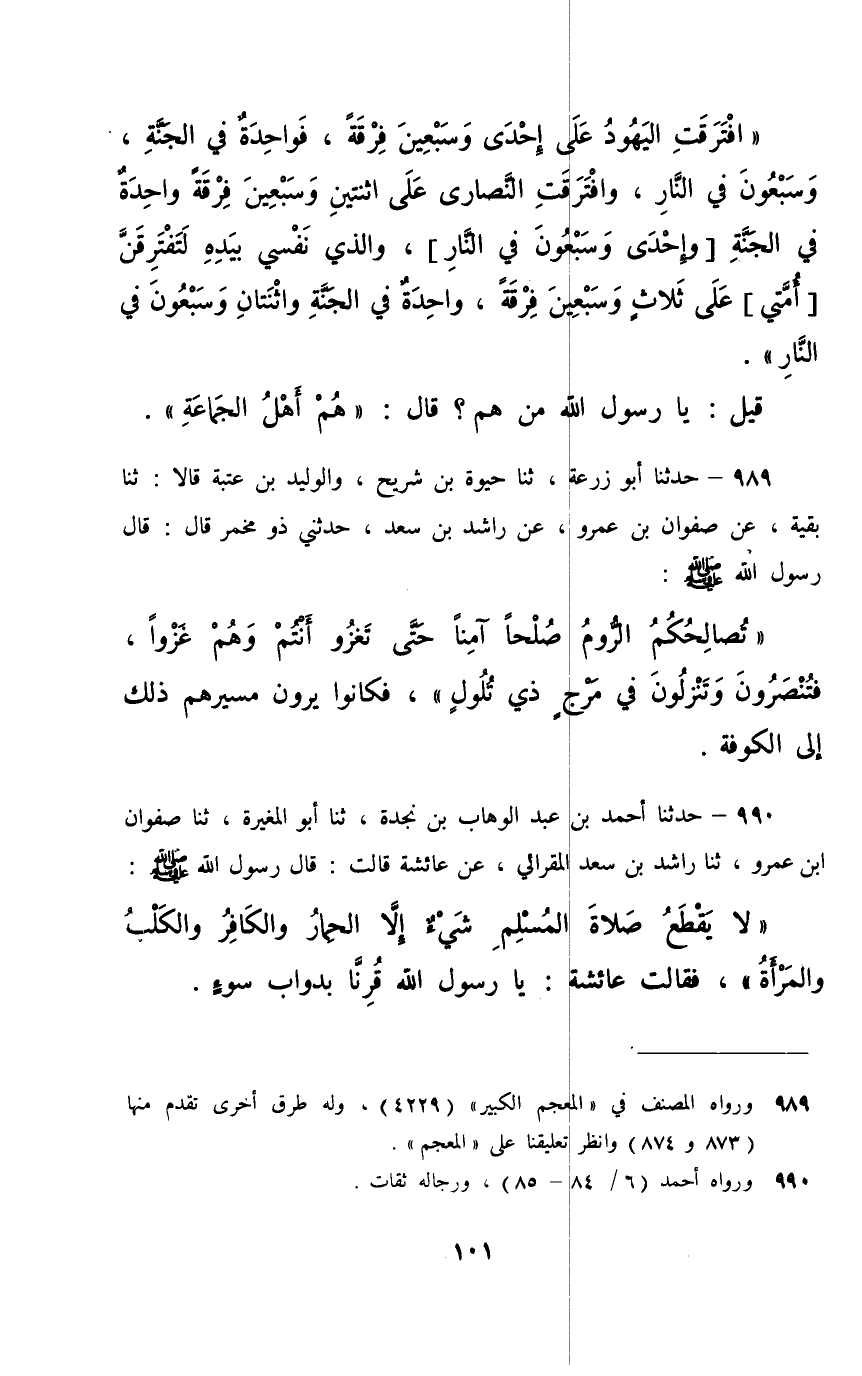 « افْتَرَقَتِ اليَهُودُ عَلَى إِحْدَى وَسَبْعِينَ فِرْقَةً ، فَواحِدَةٌ في الجَنَّةِ ،
وَسَبْعُونَ في النَّارِ ، وافْتَرَقَتِ النَّصارى عَلَى اثنتينِ وَسَبْعِينَ فِرْقَةً واحِدَةٌ
في الجَنَّةِ [ وإِحْدَى وَسَبْعُونَ في النَّارِ ] ، والذي نَفْسي بيَدِهِ لَتَفْتَرِقَنَّ
[ أُمَّتي ] عَلَى ثَلاثٍ وَسَبْعِينَ فِرْقَةً ، واحِدَةٌ في الجَنَّةِ واثْنَتانِ وَسَبْعُونَ في
النَّارِ » .
قيل : يا رسول الله من هم ؟ قال : « هُمْ أَهْلُ الجَمَاعَةِ » .
٩٨٩ – حدثنا أبو زرعة ، ثنا حيوة بن شريح ، والوليد بن عتبة قالا : ثنا
بقية ، عن صفوان بن عمرو ، عن راشد بن سعد ، حدثني ذو مخمر قال : قال
رسول الله ﷺ :
« تُصالِحُكُمُ الرُّومُ صُلْحاً آمِناً حَتَّى تَغزُو أَنْتُمْ وَهُمْ غَزْواً ،
فتُنْصَرُونَ وَتَنْزِلُونَ في مَرْجٍ ذي تُلُولٍ » ، فكانوا يرون مسيرهم ذلك
إلى الكوفة .
٩٩٠ – حدثنا أحمد بن عبد الوهاب بن نجدة ، ثنا أبو المغيرة ، ثنا صفوان
ابن عمرو ، ثنا راشد بن سعد المقرائي ، عن عائشة قالت : قال رسول الله ﷺ :
« لا يَقْطَعُ صَلاةَ المُسْلِمِ شَيْءٌ إِلَّا الحِمارُ والكَافِرُ والكَلْبُ
والمَرْأَةُ » ، فقالت عائشة : يا رسول الله قُرِنَّا بدواب سوءٍ .
٩٨٩ ورواه المصنف في «المعجم الكبير» ( ٤٢٢٩ ) ، وله طرق أخرى تقدم منها
( ٨٧٣ و ٨٧٤ ) وانظر تعليقنا على « المعجم » .
٩٩٠ ورواه أحمد ( ٦ / ٨٤ – ٨٥ ) ، ورجاله ثقات .
١٠١